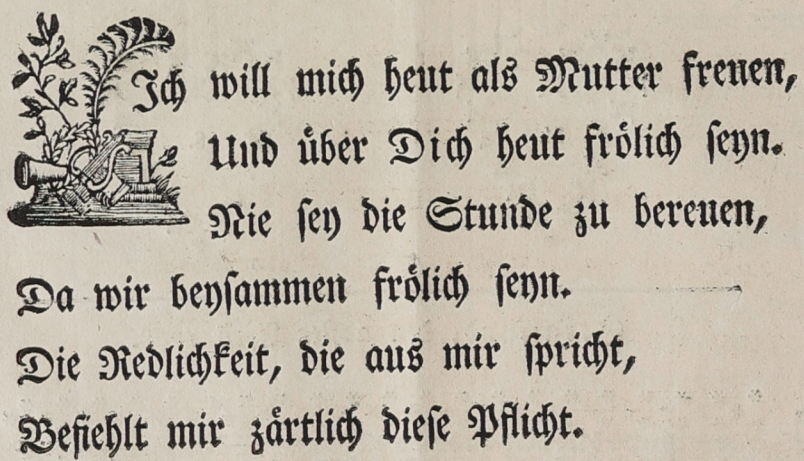 Ich will mich heut als Mutter freuen,
Und über Dich heut frölich seyn.
Nie sey die Stunde zu bereuen,
Da wir beysammen frölich seyn.
Die Redlichkeit, die aus mir spricht,
Befiehlt mir zärtlich diese Pflicht.